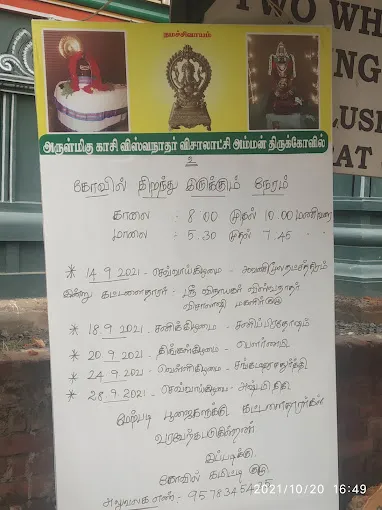 TWO WH
NG
LUSI
AT
நமச்சிவாயம்
அருள்மிகு காசி விஸ்வநாதர் விசாலாட்சி அம்மன் திருக்கோவில்
உ
கோவில் திறந்து இருக்கும் நேரம்
காலை : 8.00 முதல் 10.00 மணிவரை
மாலை : 5.30 முதல் 7.45 〃
* 14.9.2021 - செவ்வாய்கிழமை -
இன்று கட்டளைதாரர் - ஸ்ரீ விநாயகர் விஸ்வநாதர்
விசாலாஷி மகளிர்குழு
* 18.9.2021 - சனிக்கிழமை - சனிப்பிரதோஷம்
* 20.9.2021 - திங்கள்கிழமை - பௌர்ணமி
* 24.9.2021 - வெள்ளிகிழமை - சங்கடஹரசதுர்த்தி
* 28.9.2021 - செவ்வாய்கிழமை - அஷ்டமிதிதி
மேற்படி பூஜைகளுக்கு கட்டளைதாரர்கள்
வரவேற்கபடுகிறார்கள்
இப்படிக்கு
கோவில் கமிட்டி குழு
அலுவலக எண் : 95783454
2021/10/20 16:49